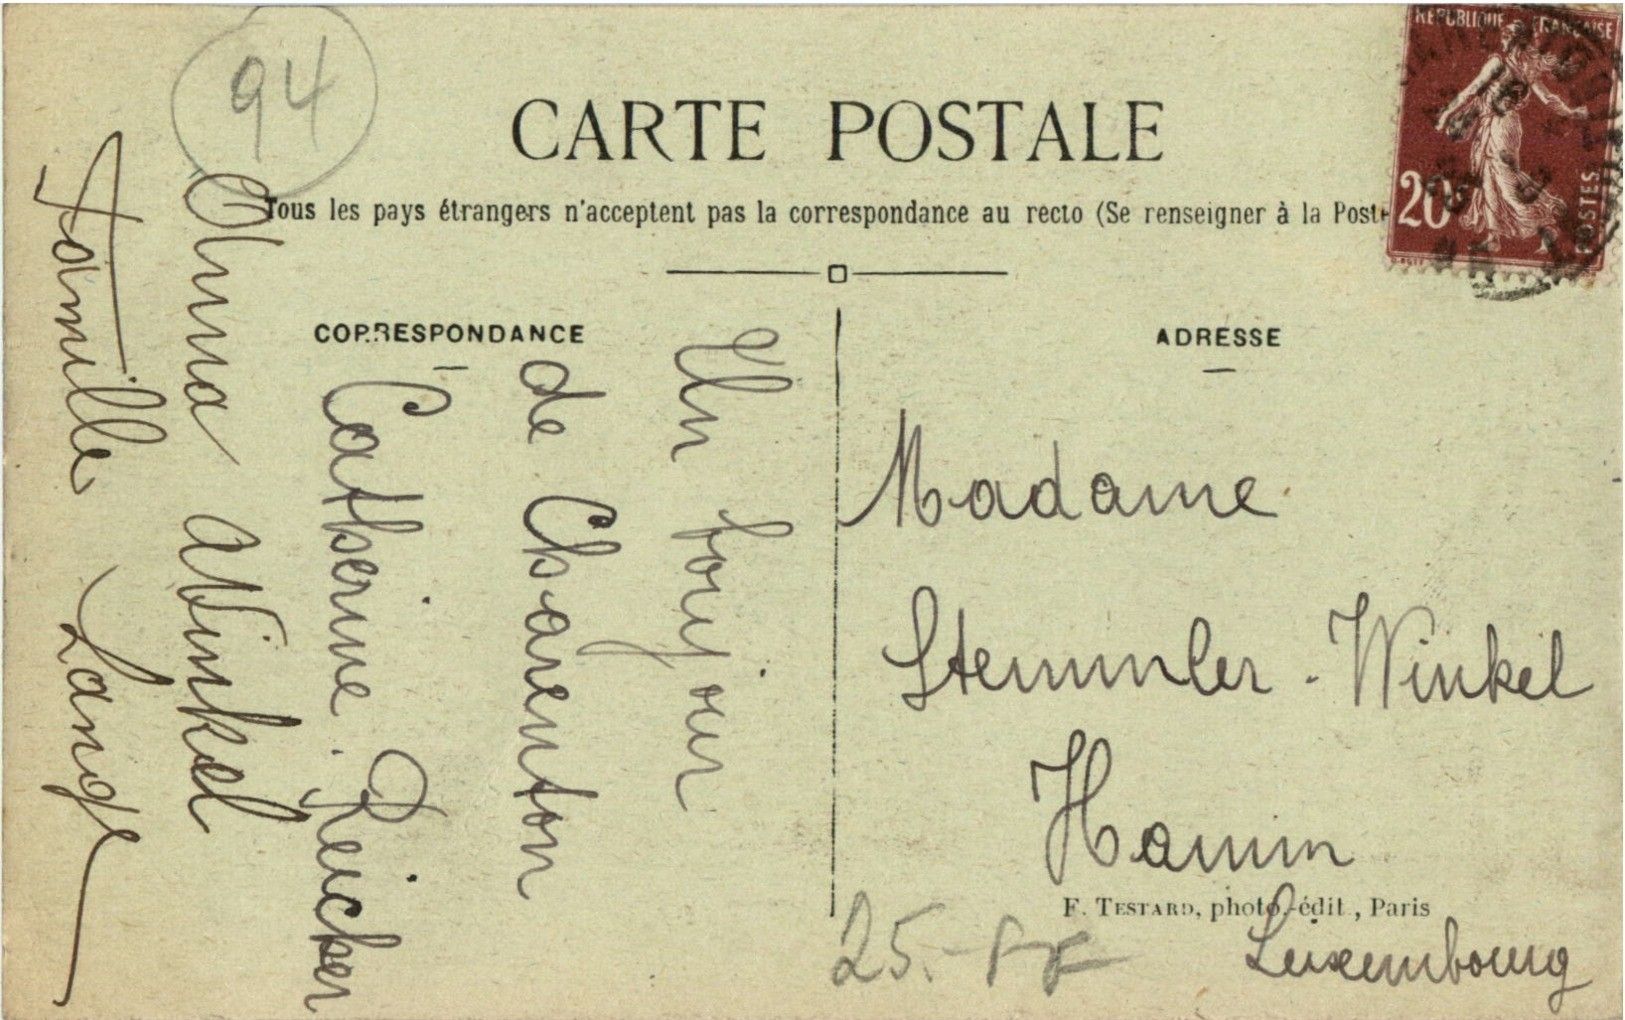 94
CARTE POSTALE
Tous les pays étrangers n'acceptent pas la correspondance au recto (Se renseigner à la Poste
REPUBLIQUE FRANÇAISE
20
POSTES
CORRESPONDANCE
Un bonjour
de Charenton
Catherine Reicher
Anna Winkel
Famille Lange
ADRESSE
Madame
Stemmler-Winkel
Hamm
F. TESTARD, photo.-édit., Paris
Luxembourg
25.-